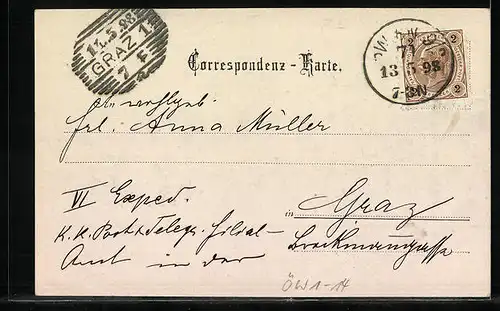 14.5.98
GRAZ 1
7 F
Correspondenz - Karte.
13 5 98
7-8N
2 2
frl. Anna Müller
VI Exped.
in Graz
K. K. Post & Telegr. Filial-
Amt in der Brockmanngasse
ÖW1-14